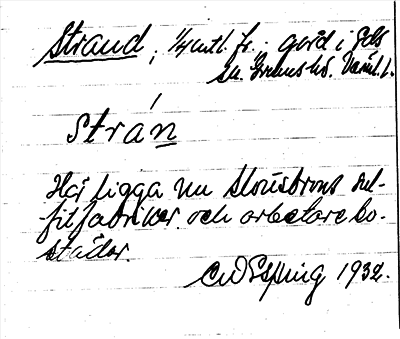 Strand, 1/4 mtl. fr.; gård i Eds
sn. Grums hd. Värml. l.
strán
Här ligga nu Slottsbrons sul-
fitfabriker och arbetarebo-
städer.
C W Esping 1932.